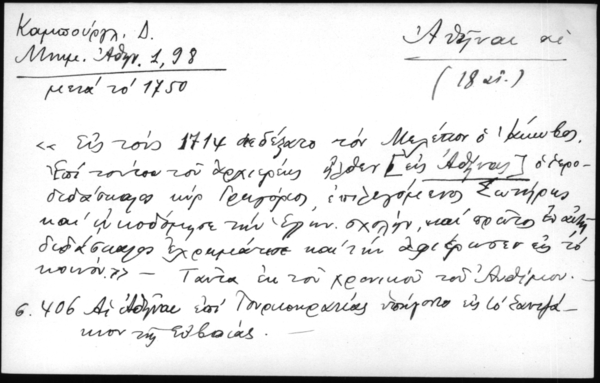 Καμπούργλ. Δ.
Μνημ. Ἀθην. 1, 98
μετά τό 1750
Ἀθῆναι αἱ
(18 αἰ.)
« Εἰς τούς 1714 διεδέξατο τόν Μελέτιον ὁ Ἰάκωβος.
Ἐπί τούτου τοῦ ἀρχιερέως ἦλθεν [εἰς Ἀθήνας] ὁ ἱερο-
διδάσκαλος κύρ Γρηγόριος, ἐπιλεγόμενος Σωτήρης
καί ᾠκοδόμησε τήν Ἑλλην. σχολήν, καί πρῶτος ἐν αὐτῇ
διδάσκαλος ἐχρημάτισε καί τήν ἀφιέρωσεν εἰς τό
κοινόν.» — Ταῦτα ἐκ τοῦ χρονικοῦ τοῦ Ἀνθίμου. -
σ. 406 Αἱ Ἀθῆναι ἐπί Τουρκοκρατίας ὑπήγοντο εἰς τό Σαντζά-
κιον τῆς Εὐβοίας.